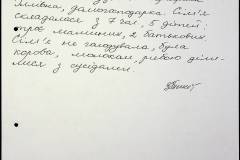 домогосподарка. Сім'я
складалася з 7 чол., 5 дітей:
троє малших, 2 батькових
Сім'я не голодувала, була
корова, молоком, рибою діли-
лися з сусідами.